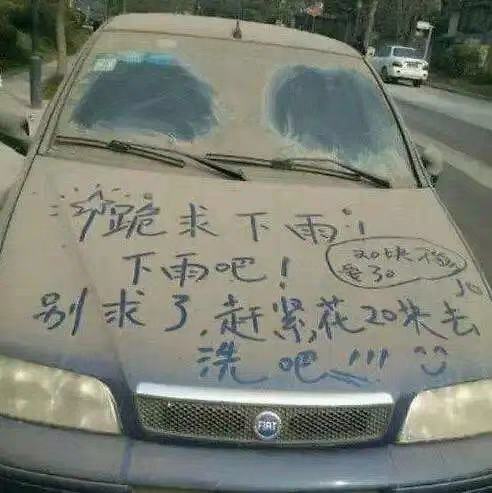 跪求下雨!
下雨吧!
20块不够
要30
别求了,赶紧花20块去
洗吧!!!
FIAT